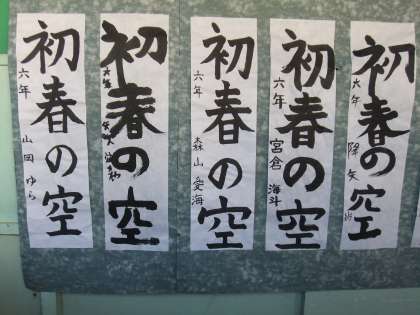 初春の空
六年
山岡 ゆら
初春の空
六年
初春の空
六年
森山 愛海
初春の空
六年
宮倉 海斗
初春の空
六年
降矢